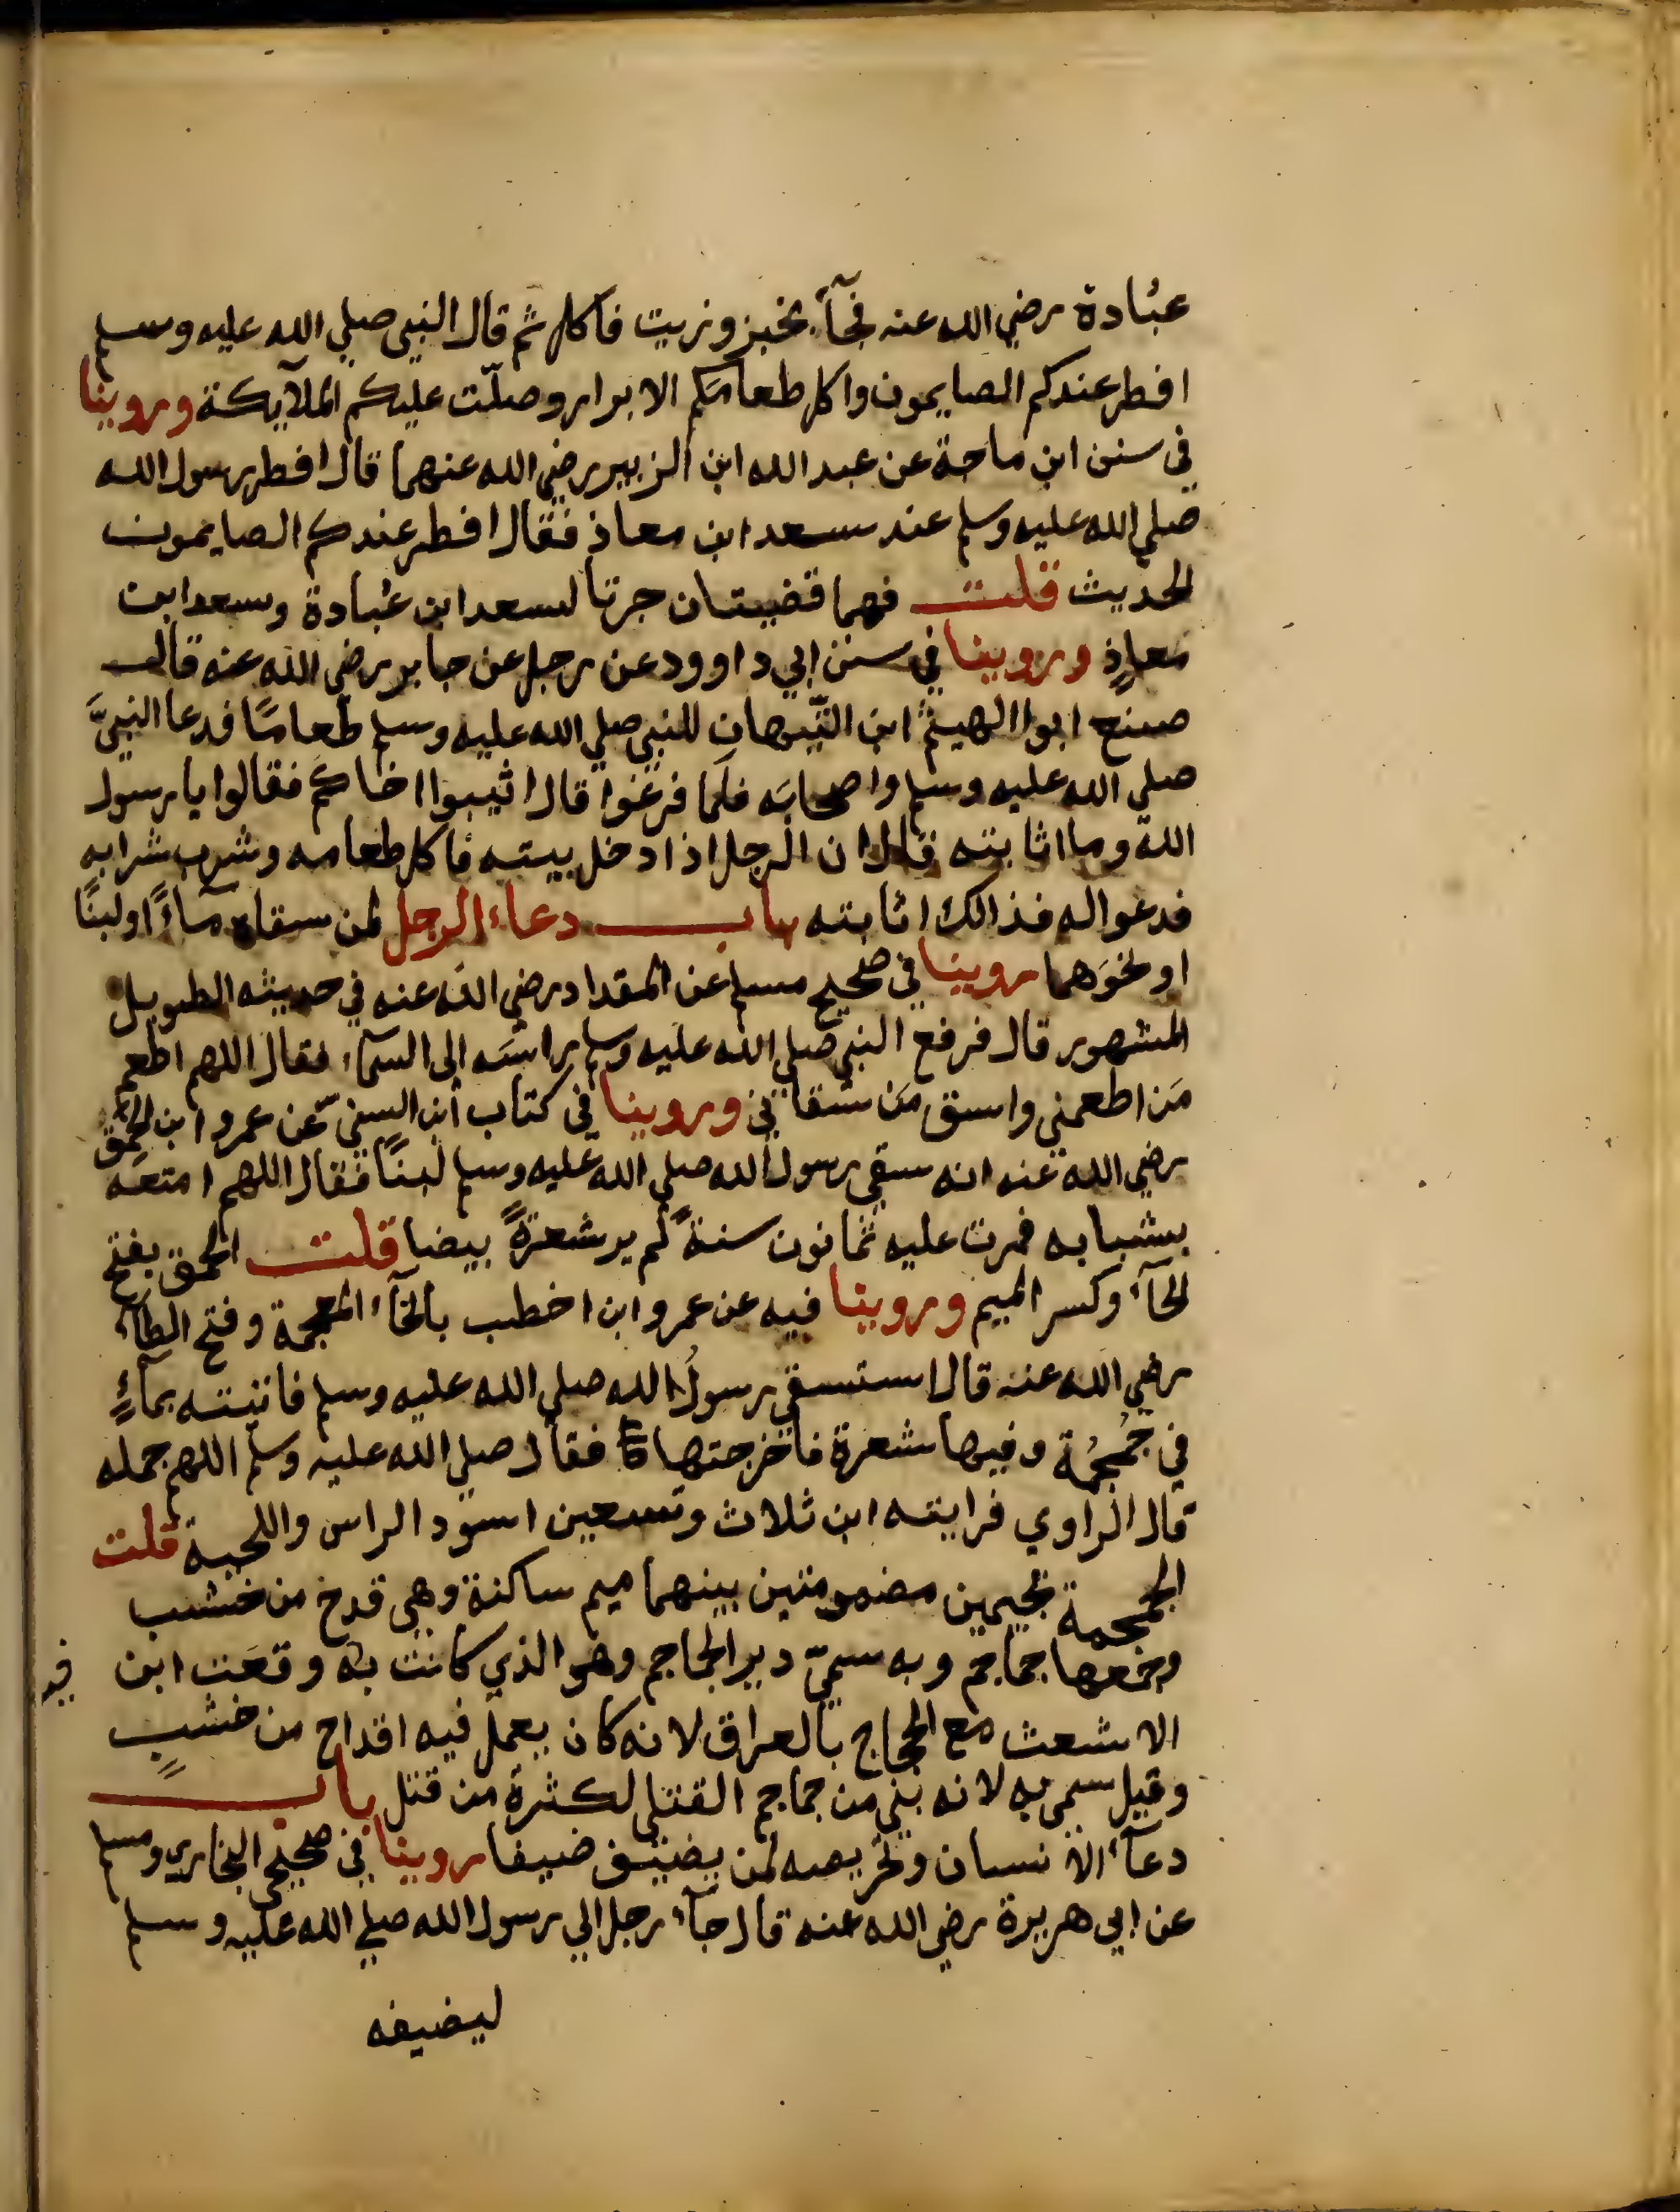 عبُادة رضي الله عنه فجآء بخبز وزيت فاكل ثم قال النبي صلي الله عليه وسلم
افطر عندكم الصايمون واكل طعامَكم الابرار وصلّت عليكم الملآيكة وروينا
في سنن ابن ماجة عن عبد الله ابن الزبير رضي الله عنهما قال افطر رسول الله
صلي الله عليه وسلم عند سعد ابن معاذ فقال افطر عندكم الصايمون
الحديث قلت فهما قضيتان جرتا لسعد ابن عُبادة وسعد ابن
مَعاذٍ وروينا في سنن ابي داوود عن رجل عن جابر رضي الله عنه قال
صنع ابوا الهيثم ابن التّيهان للنبي صلي الله عليه وسلم طعامًا فدعا النبيَّ
صلي الله عليه وسلم واصحابَه فلما فرغوا قال اثيبوا اخاكم فقالوا يا رسول
الله وما اثابته قال ان الرجل اذا دخل بيته فاكل طعامه وشرب شرابه
فدعوا له فذالك اثابته باب دعاء الرجل لمن سقاه مآءً او لبنًا
او نحوَهما روينا في صحيح مسلم عن المقداد رضي الله عنه في حديثه الطويل
المشهور قال فرفع النبي صلي الله عليه وسلم راسَه الى السمآء فقال اللهم اطعم
مَن اطعمني واسق مَن سقاني وروينا في كتاب ابن السني عن عمرو ابن الحَمِق
رضي الله عنه انه سقي رسول الله صلي الله عليه وسلم لبنًا فقال اللهم امتعه
بشبابه فمرت عليه ثمانون سنةً لم ير شعرةً بيضا قلت الحمق بفتح
الحآء وكسر الميم وروينا فيه عن عمرو ابن اخطب بالخآء المعجمة وفتح الطآء
رضي الله عنه قال استسقي رسولُ الله صلي الله عليه وسلم فاتيته بمآءٍ
في جُمجُمة وفيها شعرة فاخرجتها فقال صلي الله عليه وسلم اللهم جمله
قال الراوي فرايته ابن ثلاث وتسعين اسود الراس واللحية قلت
الجمجمة بجيمين مضمومتين بينهما ميم ساكنة وهي قدح من خشب
وجمعها جماجم وبه سميّ دير الجماجم وهو الذي كانت به وقعَت ابن
الاشعث مع الحجاج بالعراق لانه كان يعمل فيه اقداح من خشبٍ
وقيل سمي به لانه بني من جماجم القتلي لكثرة من قتل باب
دعآء الانسان وتحريصه لمن يضيّف ضيفا روينا في صحيحي البخاري ومسلم
عن ابي هريرة رضي الله عنه قال جآء رجل الي رسول الله صلي الله عليه وسلم
ليضيفه